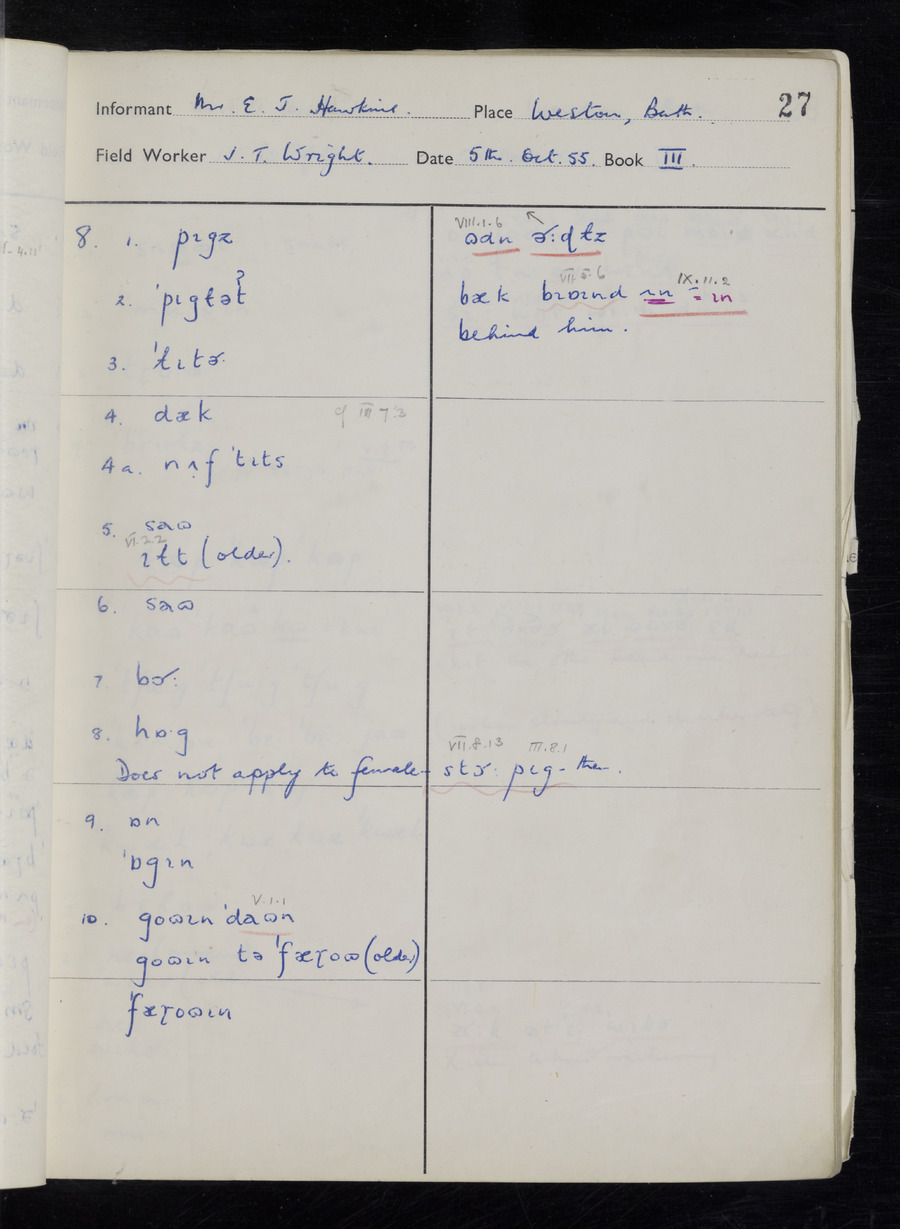 27
Informant Mr. E. J. Hawkins. Place Weston, Bath.
Field Worker J. T. Wright. Date 5th. Oct. 55. Book III.
8. 1. pɪgz
2. ˈpɪgɫəʔt
3. ˈɫɪtɚ
4. dæk cf III 7.3
4a. ˈtɪts
5. saɷ
VI.2.2
ɪɫt (older).
6. saɷ
7 bɚ:
8. hɒ·g
Does not apply to female
9. ɒn
ˈɒgɪn
V.1.1
10. goɷɪn ˈdaɷn
goɷɪn tə ˈfæɽoɷ (older)
ˈfæɽoɷɪn
VIII.1.6
ɷdn ɚ:dɫz
VII.5.6 IX.11.2
bæk bɪɒɪnd ɪn = ɪn
behind him.
VII.8.13 III.8.1
stɔ: pɪg - then.